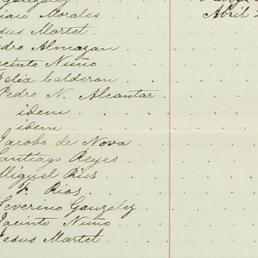 Morales Abril
Jesus Martet
Pedro Almazan
Jacinto Niño
Felix Calderon
Pedro N. Alcantar
idem
idem
Jacobo de Nova
Santiago Reyes
Miguel Rios
" Rios
Severino Gonzalez
Jacinto Niño
Jesus Martet